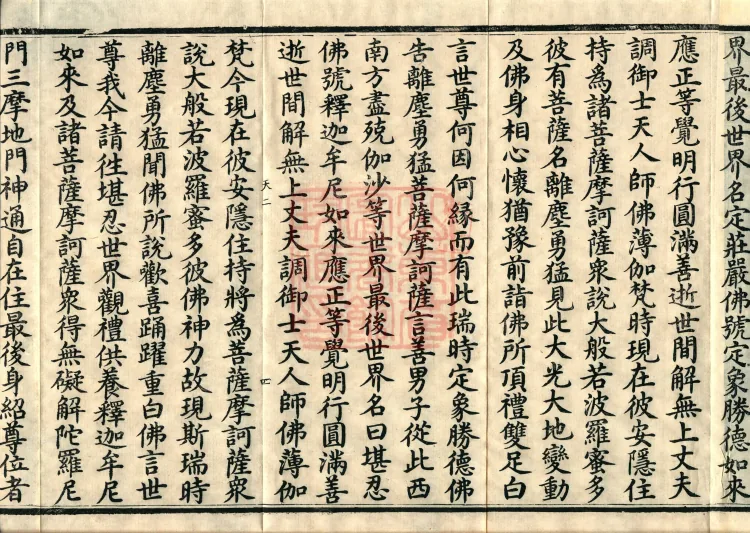 界最後世界名定莊嚴佛號定象勝德如來
應正等覺明行圓滿善逝世間解無上丈夫
調御士天人師佛薄伽梵時現在彼安隱住
持為諸菩薩摩訶薩衆說大般若波羅蜜多
彼有菩薩名離塵勇猛見此大光大地變動
及佛身相心懷猶豫前詣佛所頂禮雙足白
言世尊何因何緣而有此瑞時定象勝德佛
告離塵勇猛菩薩摩訶薩言善男子從此西
南方盡殑伽沙等世界最後世界名曰堪忍
佛號釋迦牟尼如來應正等覺明行圓滿善
逝世間解無上丈夫調御士天人師佛薄伽
天二 四
梵今現在彼安隱住持將為菩薩摩訶薩衆
說大般若波羅蜜多彼佛神力故現斯瑞時
離塵勇猛聞佛所說歡喜踊躍重白佛言世
尊我今請往堪忍世界觀禮供養釋迦牟尼
如來及諸菩薩摩訶薩衆得無礙解陀羅尼
門三摩地門神通自在住最後身紹尊位者